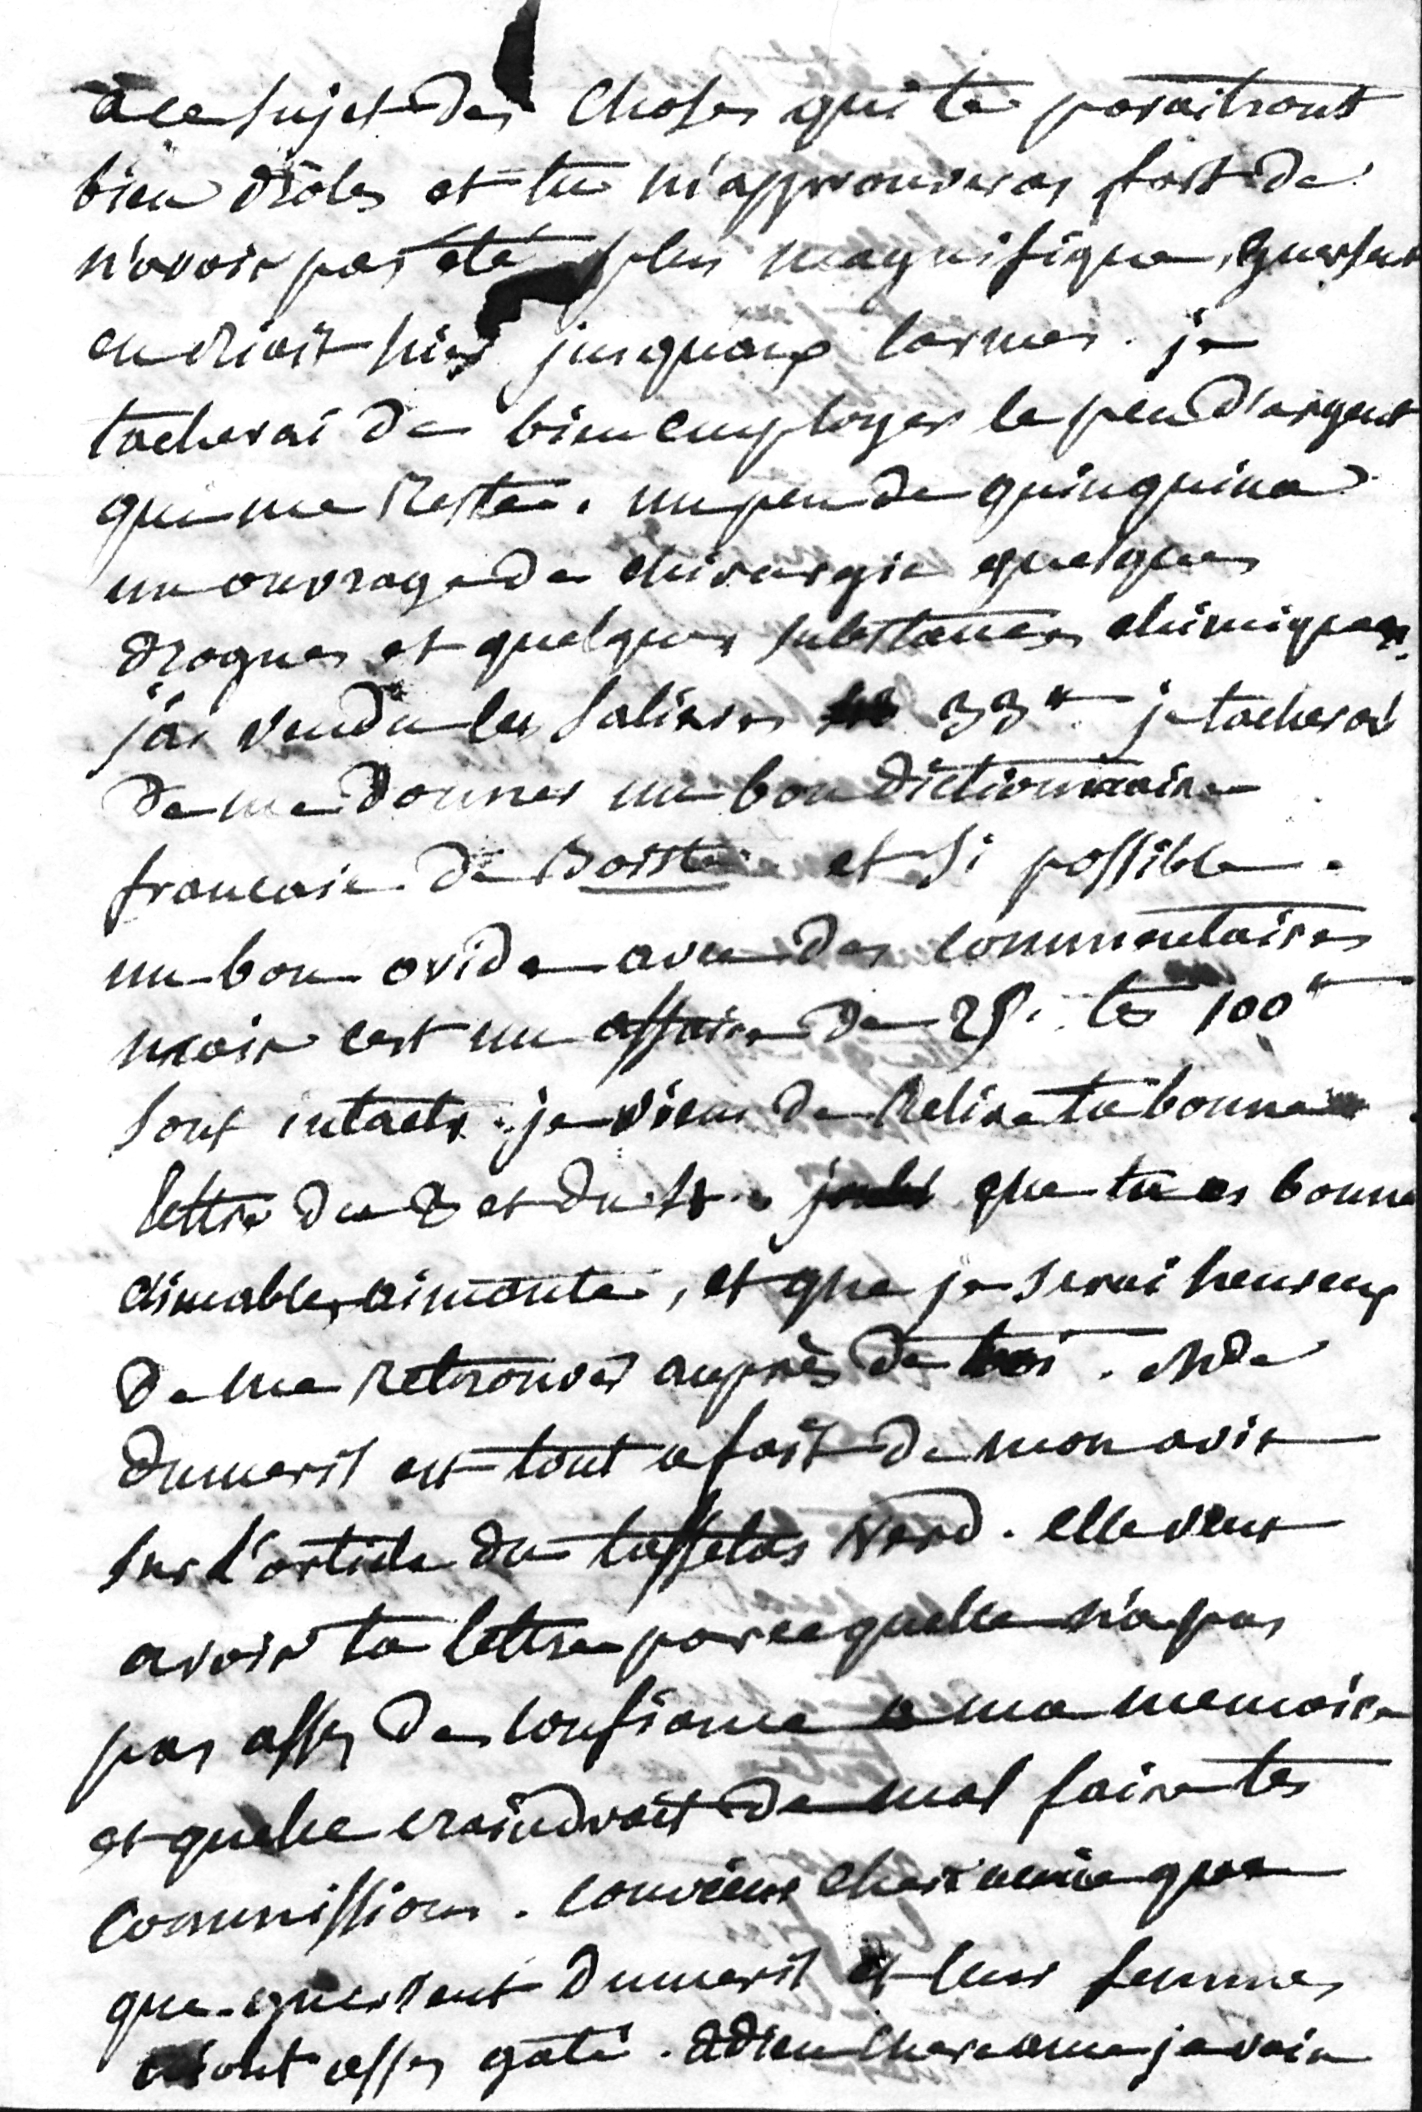 a ce sujet des choses qui te paraitront
bien drôles et tu m'approuveras fort de
n'avoir pas été plus magnifique, Guersent
en rioit hier jusquaux larmes. je
tacherai de bien employer le peu d'argent
qui me reste. un peu de quinquina
un ouvrage de chirurgie quelques
drogues et quelques substances chimiques.
j'ai vendu les salieres 33tt je tacherai
de me donner un bon dictionnaire
francais de Boiste et si possible.
un bon ovide avec des commentaires
mais cest un affaire de 25. les 100tt
sont intacts. je viens de relire ta bonne
lettre du 3 et du que tu es bonne
aimable, aimante, et que je serai heureux
de me retrouver auprès de toi. Mde
dumeril est tout a fait de mon avis
sur l'article du taffetas verd. elle veut
avoir ta lettre parcequelle n'a pas
pas assez de confiance a ma memoire
et quelle craindroit de mal faire tes
commissions. conviens chere amie que
que guersent dumeril et leurs femmes
m'ont assez gaté. adieu chere amie je vais